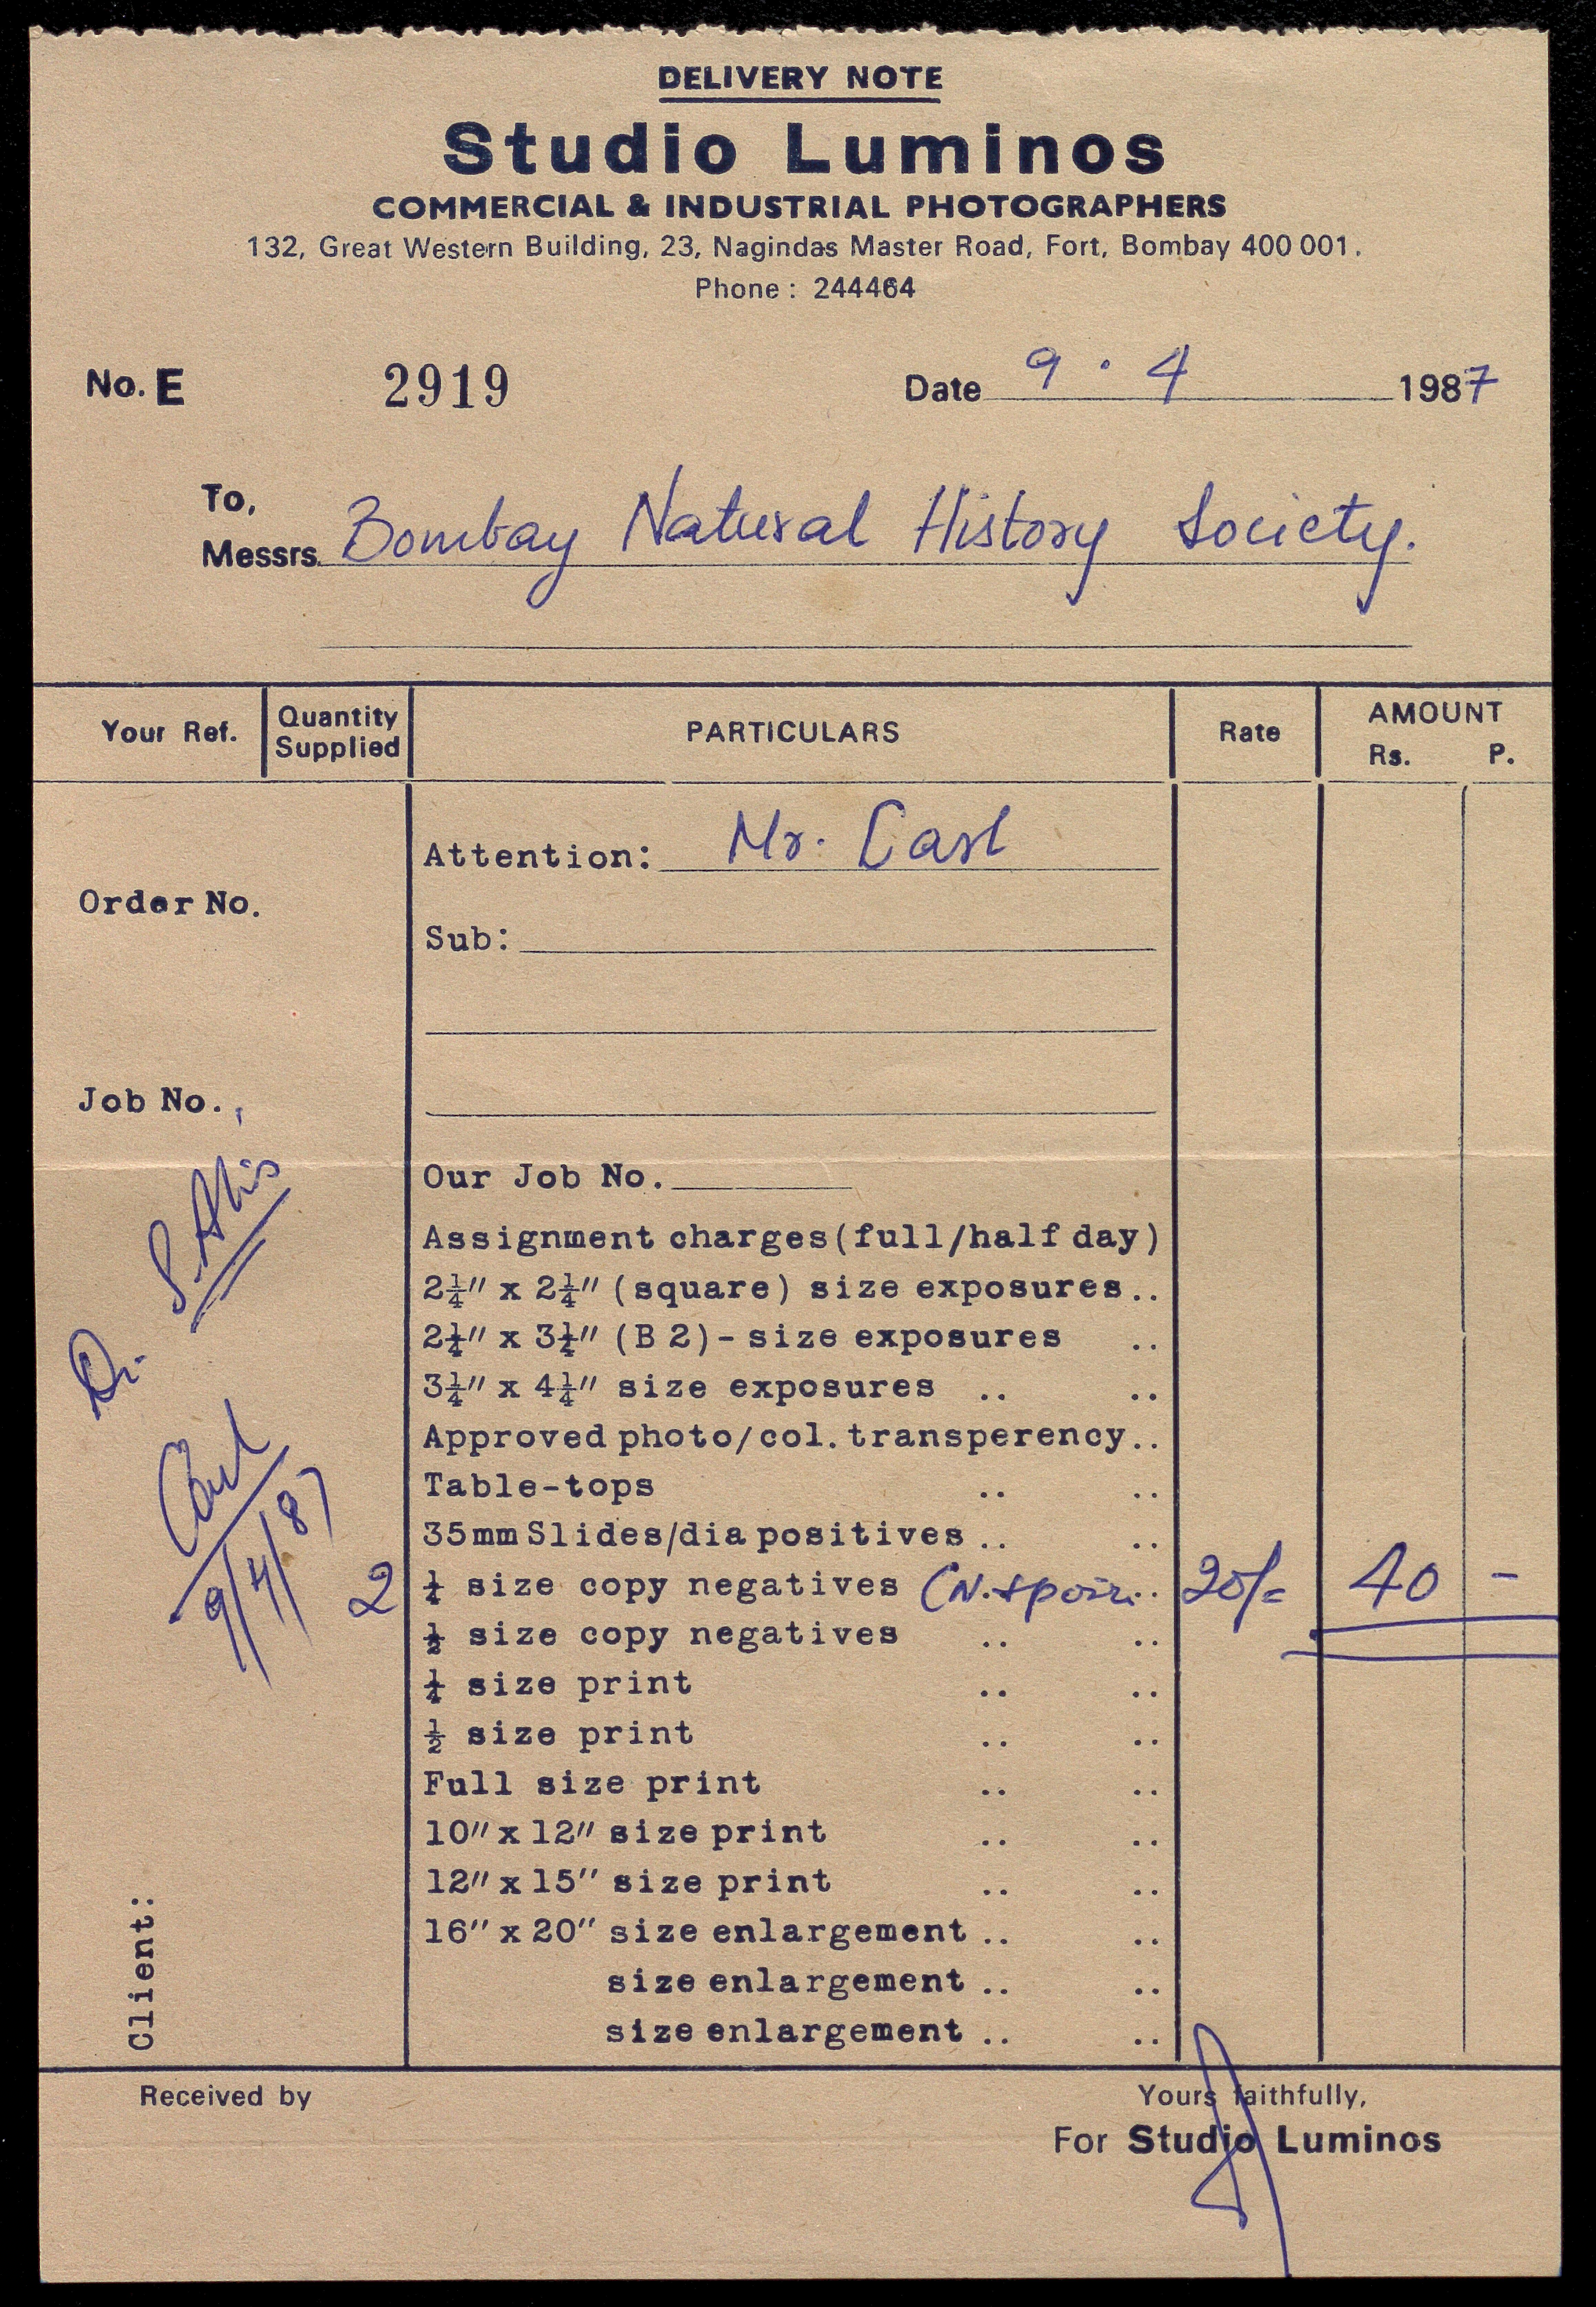 DELIVERY NOTE
Studio Luminos
COMMERCIAL & INDUSTRIAL PHOTOGRAPHERS
132, Great Western Building, 23, Nagindas Master Road, Fort, Bombay 400 001.
Phone : 244464
No. E 2919 Date 9 . 4 1987
To,
Messrs. Bombay Natural History Society.
Your Ref. Quantity Supplied PARTICULARS Rate AMOUNT Rs. P.
Attention: Mr. Carl
Order No.
Sub:
Job No.
Our Job No.
Dr. S. Ali's
Assignment charges (full/half day)
2¼" x 2¼" (square) size exposures ..
2¼" x 3¼" (B 2) - size exposures ..
3¼" x 4¼" size exposures .. ..
Approved photo/col. transperency ..
Carl
9/4/87
Table-tops .. ..
35mm Slides/diapositives .. ..
2 ¼ size copy negatives .. 20/- 40 -
½ size copy negatives .. ..
¼ size print .. ..
½ size print .. ..
Full size print .. ..
10" x 12" size print .. ..
12" x 15" size print .. ..
16" x 20" size enlargement .. ..
size enlargement .. ..
size enlargement .. ..
Client:
Received by
Yours faithfully,
For Studio Luminos